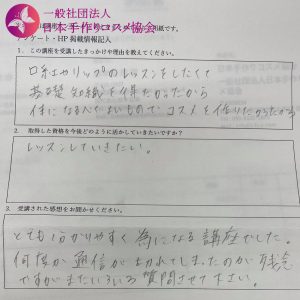 一般社団法人
日本手作りコスメ協会
アンケート・HP 掲載情報記入
1. この講座を受講したきっかけや理由を教えてください。
口紅やリップのレッスンをしたくて
基礎知識を得たかったから
体になるんでないもので コスメを作りたかったから
2. 取得した資格を今後どのように活かしていきたいですか?
レッスンしていきたい。
3. 受講された感想をお聞かせください。
とても分かりやすく為になる講座でした。
何度か通信が切れてしまったのが残念
ですがまたいろいろ質問させて下さい。